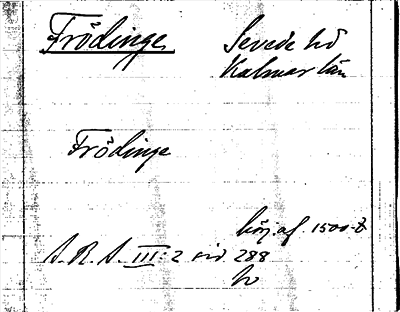 Frödinge
Sevede hd
Kalmar län
Frödinge
börj. af. 1500-t
S. R. S. III:2 sid 288